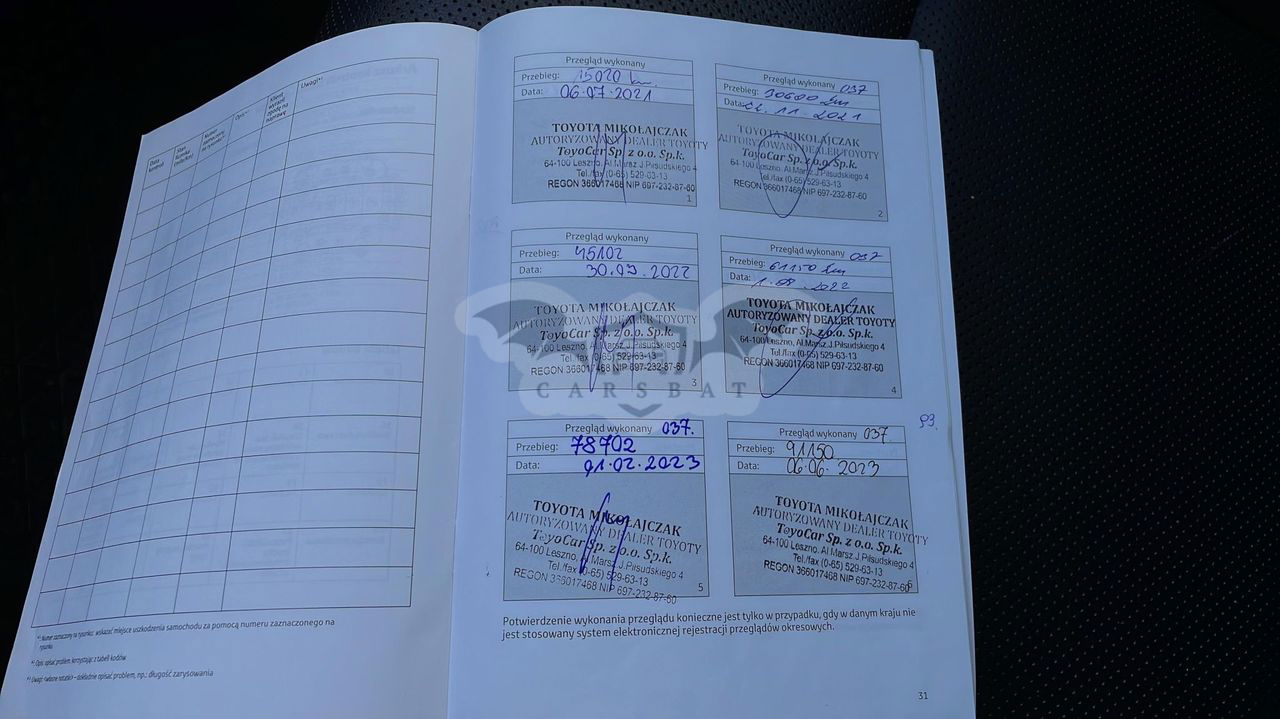 Data
Numer
Opis**
Uwagi**
*⁾ Numer zaznaczony na rysunku: wskazać miejsce uszkodzenia samochodu za pomocą numeru zaznaczonego na
rysunku
*⁾ Opis: opisać problem, korzystając z tabeli kodów
*⁾ Uwagi (własne notatki) – dokładnie opisać problem, np.: długość zarysowania
Przegląd wykonany
Przebieg: 15020 km
Data: 06.07.2021
TOYOTA MIKOŁAJCZAK
AUTORYZOWANY DEALER TOYOTY
ToyoCar Sp. z o.o. Sp.k.
64-100 Leszno, Al.Marsz.J.Piłsudskiego 4
Tel./fax (0-65) 529-63-13
REGON 366017468 NIP 697-232-87-60
1
Przegląd wykonany 037
Przebieg: 30600 km
Data: 11.2021
TOYOTA MIKOŁAJCZAK
AUTORYZOWANY DEALER TOYOTY
ToyoCar Sp. z o.o. Sp.k.
64-100 Leszno, Al.Marsz.J.Piłsudskiego 4
Tel./fax (0-65) 529-63-13
REGON 366017468 NIP 697-232-87-60
2
Przegląd wykonany
Przebieg: 45102
Data: 30.03.2022
TOYOTA MIKOŁAJCZAK
AUTORYZOWANY DEALER TOYOTY
ToyoCar Sp. z o.o. Sp.k.
64-100 Leszno, Al.Marsz.J.Piłsudskiego 4
Tel./fax (0-65) 529-63-13
REGON 366017468 NIP 697-232-87-60
3
Przegląd wykonany 037
Przebieg: 61150 km
Data: 1.08.2022
TOYOTA MIKOŁAJCZAK
AUTORYZOWANY DEALER TOYOTY
ToyoCar Sp. z o.o. Sp.k.
64-100 Leszno, Al.Marsz.J.Piłsudskiego 4
Tel./fax (0-65) 529-63-13
REGON 366017468 NIP 697-232-87-60
4
CARSBAT
Przegląd wykonany 037.
Przebieg: 78702
Data: 01.02.2023
TOYOTA MIKOŁAJCZAK
AUTORYZOWANY DEALER TOYOTY
ToyoCar Sp. z o.o. Sp.k.
64-100 Leszno, Al.Marsz.J.Piłsudskiego 4
Tel./fax (0-65) 529-63-13
REGON 366017468 NIP 697-232-87-60
5
Przegląd wykonany 037.
Przebieg: 91150
Data: 06.06.2023
TOYOTA MIKOŁAJCZAK
AUTORYZOWANY DEALER TOYOTY
ToyoCar Sp. z o.o. Sp.k.
64-100 Leszno, Al.Marsz.J.Piłsudskiego 4
Tel./fax (0-65) 529-63-13
REGON 366017468 NIP 697-232-87-60
6
93.
Potwierdzenie wykonania przeglądu konieczne jest tylko w przypadku, gdy w danym kraju nie
jest stosowany system elektronicznej rejestracji przeglądów okresowych.
31